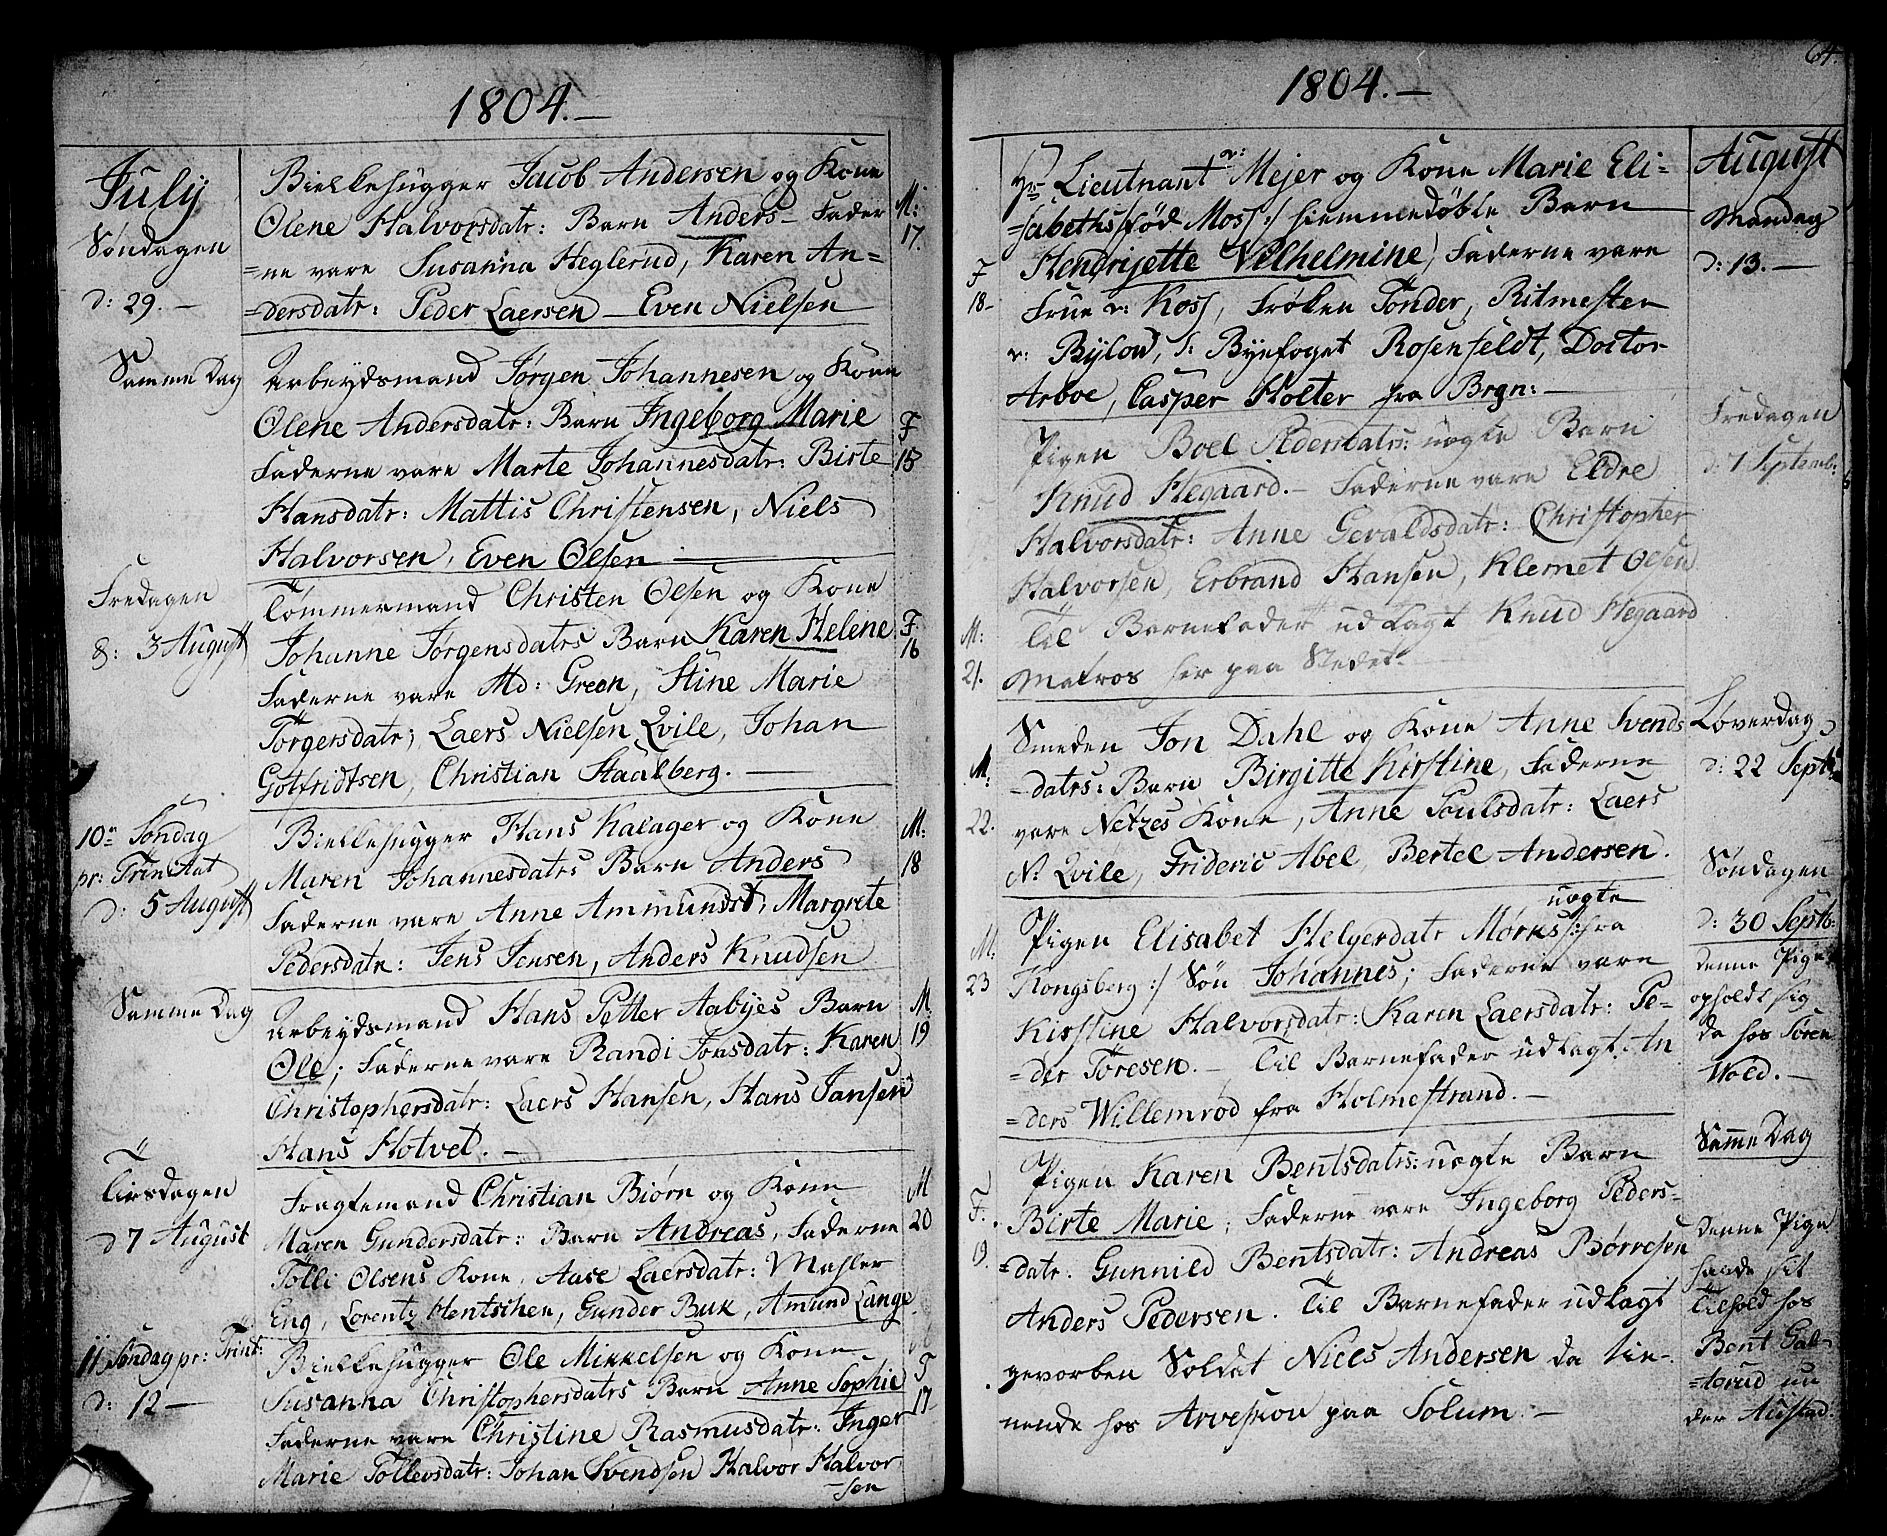 1804.—
July
Søndagen
d: 29.—
Biellehugger Jacob Andersen og Kone
Olene Halvorsdatr: Barn Anders – Fader
=ne vare Susanna Heglerud, Karen An=
=dersdatr: Peder Laersen — Even Nielsen
M:
17.
Samme Dag
Arbeydsmand Jørgen Johannesen og Kone
Olene Andersdatr: Barn Ingeborg Marie
Faderne vare Marte Johannesdatr: Birte
Hansdatr: Mattis Christensen, Niels
Halvorsen, Even Olsen —
F
15
Fredagen
d: 3 August
Tømmermand Christen Olsen og Kone
Johanne Jørgensdatrs Barn Karen Helene
Faderne vare Md: Green, Stine Marie
Torgersdatr; Laers Nielsen Qvile, Johan
Gotfridtsen, Christian Staalberg. —
F
16
10n Søndag
pr: Trinitat
d: 5 August
Biellehugger Hans Kalager og Kone
Maren Johannesdatrs Barn Anders
Faderne vare Anne Ammundst, Margrete
Pedersdatr: Jens Jensen, Anders Knudsen
M:
18
Samme Dag
Arbeydsmand Hans Petter Aabyes Barn
Ole; Faderne vare Randi Jonsdatr: Karen
Christophersdatr: Laers Hansen, Hans Jansen
Hans Hotvet. —
M
19
Tirsdagen
d 7 August
Fragtemand Christian Biørn og Kone
Maren Gundersdatr: Barn Andreas, Faderne
Tolli Olsens Kone, Aase Laersdatr: Mahler
Eng, Lorentz Hentschen, Gunder Buk, Amund Lange
M
20
11 Søndag pr: Trint:
d: 12 —
Biellehugger Ole Mikkelsen og Kone
Susanna Christophersdatrs Barn Anne Sophie
Faderne vare Christine Rasmusdatr: Inger
Marie Tollevsdatr: Johan Svendsen Halvor Halvor
=sen
F
17
64.
1804.—
August
Mandag
d: 13.—
Hr Lieutnant v: Mejer og Kone Marie Eli=
=sabeths /: fød Moss :/ hiemmedøbte Barn
Hendrijette Vilhelmine, Faderne vare
Frue v: Koss, Frøken Tønder, Ritmester
v: Bylow, S: Byefoget Rosenfeldt, Doctor
Arboe, Casper Holter fra Brgn: —
F
18-
Fredagen
d: 7 Septemb:
Pigen Boel Pedersdatrs: uægte Barn
Knud Hegaard.— Faderne vare Eldre
Halvorsdatr: Anne Gevaldsdatr: Christopher
Halvorsen, Erbrand Hansen, Klemet Olsen
Til Barnefader udlagt Knud Hegaard
Matros her paa Stedet.
M:
21.
Løverdag
d: 22 Septb
Smeden Jon Dahl og Kone Anne Svends
=datrs: Barn Birgitte Kirstine, Faderne
vare Netzes Kone, Anne Poulsdatr: Laers
N: Qvile, Frideric Abel, Bertel Andersen.
M:
22.
Søndagen
d: 30 Septb:
Pigen Elisabet Helgerdatr Mørks /: fra
uægte
Kongsberg :/ Søn Johannes; Faderne vare
Kirstine Halvorsdatr: Karen Laersdatr: Pe=
=der Toresen.— Til Barnefader udlagt An
=ders Willemrød fra Holmestrand.—
M:
23
Denne Pige
opholdt sig
da hos Søren
Wold.—
Samme Dag
Pigen Karen Bentsdatrs: uægte Barn
Birte Marie; Faderne vare Ingeborg Peders=
=datr. Gunnild Bentsdatr: Andreas Børresen
Anders Pedersen. Til Barnefader udlagt
gevorben Soldat Niels Andersen da tie=
nende hos Arveskou paa Solum.—
F.
19.
Denne Pige
havde sit
Tilhold hos
Bent Gal=
=terud un
der Austad.